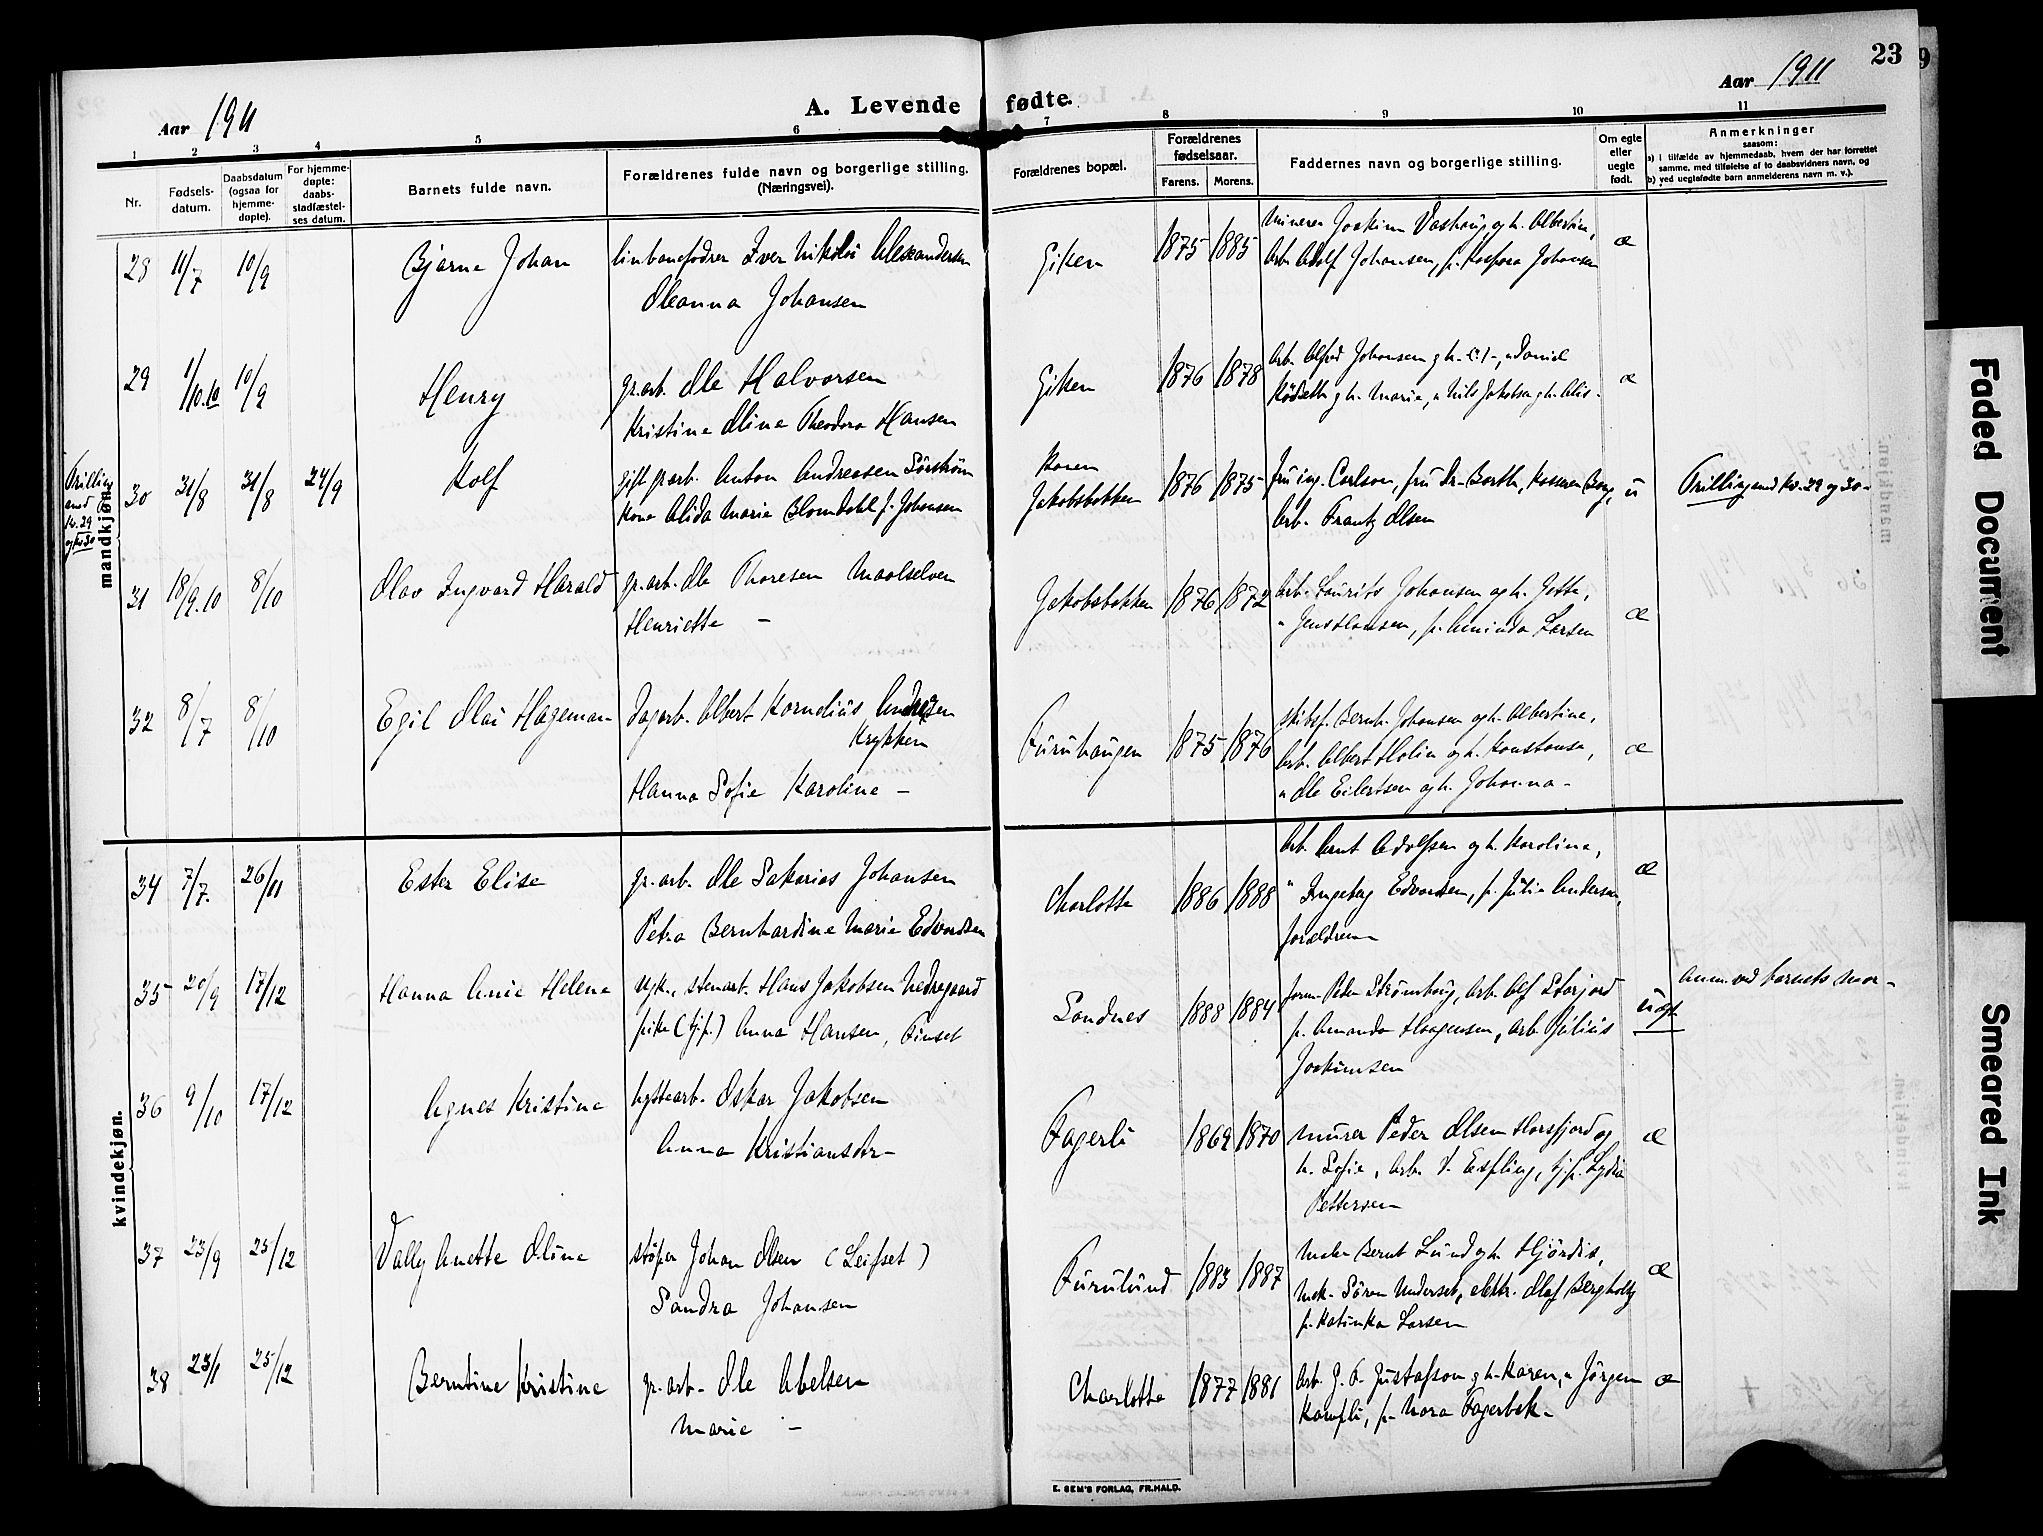 23
Aar 1911
A. Levende fødte.
Aar 1911
1 2 3 4 5 6 7 8 9 10 11
Nr.
Fødsels-
datum.
Daabsdatum
(ogsaa for
hjemme-
døpte).
For hjemme-
døpte:
daabs-
stadfæstel-
ses datum.
Barnets fulde navn.
Forældrenes fulde navn og borgerlige stilling.
(Næringsvei).
Forældrenes bopæl.
Forældrenes
fødselsaar.
Farens. Morens.
Faddernes navn og borgerlige stilling.
Om egte
eller
uegte
født.
Anmerkninger
saasom:
a) i tilfælde av hjemmedaab, hvem der har forrettet
samme, med tilføielse af to daabsvidners navn, og
b) ved uegtefødte barn anmelderens navn m. v.).
mandkjøn.
28 11/7 10/9 Bjarne Johan
linbanefodrer Iver Nikolai Alexandersen
Oleanna Johansen
Giken 1875 1885
minerer Joakim Vashaug og h. Albertine,
Arb. Adolf Johansen, p. Kaspara Johansen
æ
29 1/10.10 10/9 Henry
gr.arb. Ole Halvorsen
Kristine Oline Theodora Hansen
Giken 1876 1878
Arb. Alfred Johansen og h. , " Daniel
og h. Marie, " Nils Jakobsen og h.
æ
Trilling
med
K. 29
og K. 30
30 31/8 31/8 24/9 Rolf
gift gr.arb. Anton Andreasen Sörström
Kone Alida Marie Blomdahl f. Johansen
Koren
Jakobsbakken 1876 1875
fru ing. Carlson, fru Dr. Barth, Kasserer Borg,
Arb. Frantz Olsen
u
Trilling med Kv. 29 og 30-
31 18/9.10 8/10 Olav Ingvard Harald
gr.arb. Ole Thoresen Maalselven
Henriette -
Jakobsbakken 1876 1872
Arb. Laurits Johansen og h. Jette,
" Jens Hansen, p. Aminda Larsen
æ
32 8/7 8/10 Egil Olai Hageman
Dagarb. Albert Kornelius Andresen
Krykken
Hanna Sofie Karoline -
Furuhaugen 1875 1876
skibsf. Bernh. Johansen og h. Albertine,
Arb. Albert Holin og h. Konstanse,
" Ole Eilertsen og h. Johanna -
æ
kvindekjøn.
34 7/7. 26/11 Ester Elise
gr.arb. Ole Sakarias Johansen
Petra Bernhardine Marie Edvardsen
Charlotta 1886 1888
Arb. Arnt Adolfsen og h. Karoline,
" Ingeberg Edvardsen, p. Julie Andersen,
forældrene
æ
35 20/9 17/12 Hanna Anie Helene
ugk., stenarb. Hans Jakobsen Nedregaard
pike (tj.p.) Anna Hansen, Finset
Sandnes 1888 1884
form. Peder Strömhaug, Arb. Alf Storjord
p. Amanda Haagensen, arb. Julius
Joakimsen
uegt.
Anm. ved barnets mor-
36 9/10 17/12 Agnes Kristine
hyttearb. Oskar Jakobsen
Anna Kristiansdtr-
Fagerli 1869 1870
murer Peder Olsen Horsfjord og
h. Sofie, Arb. V. Esfling, tj.p. Lydia
Pettersen
æ
37 23/9 25/12 Vally Anette Oline
stöper Johan Olsen (Leifset)
Sandra Johansen
Furulund 1883 1887
Mek. Bernt Lund og h. Hjördis,
Mek. Sören Underset, elektr. Olaf Bergholtz
p. Katinka Larsen
æ
38 23/1 25/12 Berntine Kristine
gr.arb. Ole Abelsen
Marie -
Charlotta 1877 1881
Arb. J. A. Gustafson og h. Karen, " Jörgen
Kampli, p. Nora Fagerbak-
æ
E. SEM'S FORLAG, FR.HALD.
Faded Document
Smeared Ink